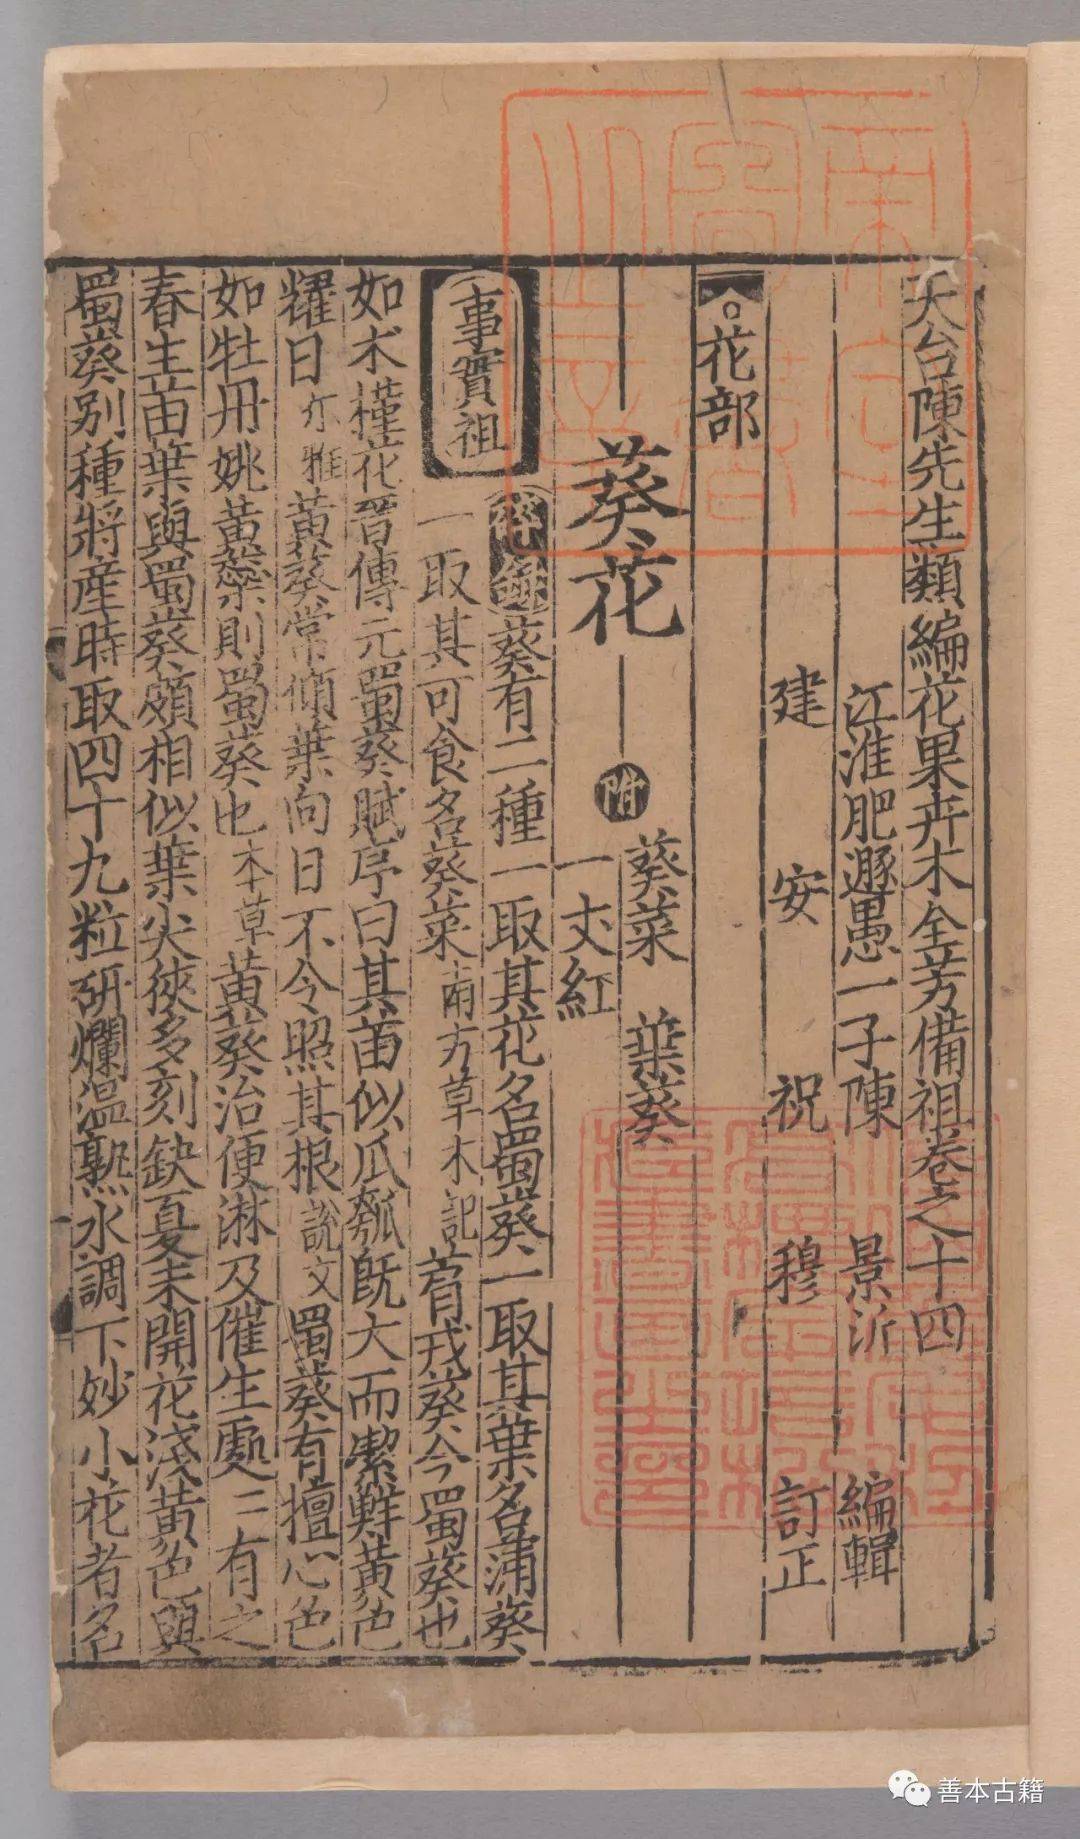 天台陳先生類編花果卉木全芳備祖卷之十四
江淮肥遯愚一子陳 景沂 編輯
建安祝 穆 訂正
花部
葵花 附 葵菜 葉葵
一丈紅
事實祖
葵有二種一取其花名蜀葵一取其葉名蒲葵
一取其可食名葵菜南方草木記 菺戎葵今蜀葵也
如木槿花晉傳元蜀葵賦序曰其苗似瓜瓠既大而潔鮮黄色
耀日尔雅黄葵常傾葉向日不令照其根說文蜀葵有擅心色
如牡丹姚黄蘂則蜀葵也本草黄葵治便淋及催生處二有之
春生苗葉與蜀葵頗相似葉尖俠多刻缺夏末開花淺黄色與
蜀葵別種將産時取四十九粒研爛温熟水調下妙小花者名
善本古籍